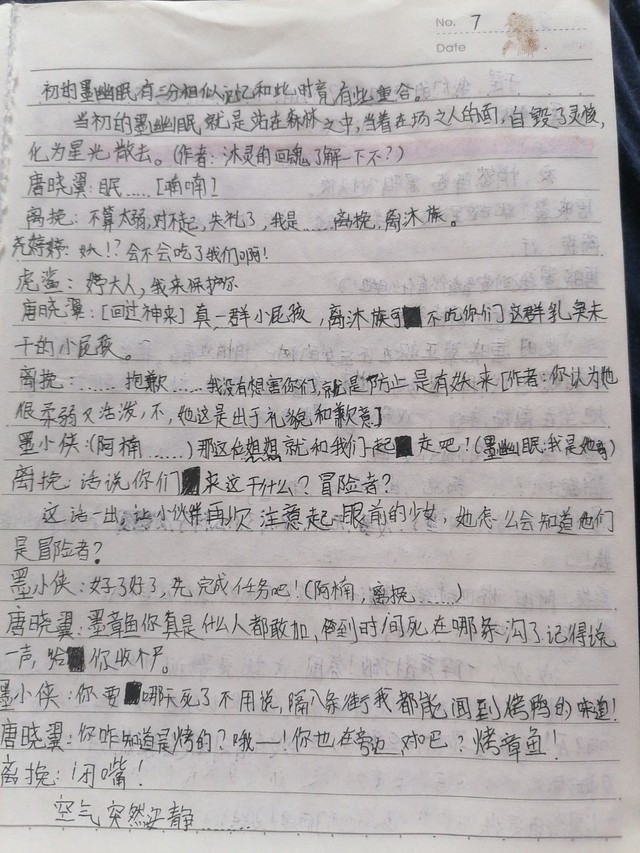 No. 7
Date
初的墨幽眠有三分相似记忆和此时竟有些重合。
当初的墨幽眠就是站在森林之中,当着在场之人的面,自毁了灵魂,
化为星光散去。(作者:沐灵的回魂了解一下不?)
唐晓翼:眠……[喃喃]
离挽:不算太弱,对不起,失礼了,我是……离挽,离沐族。
尧婷婷:妖!?会不会吃了我们啊!
虎鲨:婷大人,我来保护你
唐晓翼:[回过神来]真一群小屁孩,离沐族可不吃你们这群乳臭未
干的小屁孩。
离挽:……抱歉……我没有想害你们,就是防止是有妖来[作者:你认为她
很柔弱又活泼,不,她这是出于礼貌和歉意]
墨小侠:(阿楠……)那这位姐姐就和我们一起走吧!(墨幽眠:我是她哥)
离挽:话说你们来这干什么?冒险者?
这话一出,让小伙伴再次注意起眼前的少女,她怎么会知道他们
是冒险者?
墨小侠:好了好了,先完成任务吧!(阿楠,离挽……)
唐晓翼:墨章鱼你真是什么人都敢加,到时间死在哪条沟了记得说
一声,给你收尸。
墨小侠:你要哪天死了不用说,隔八条街我都能闻到烤鸭的味道!
唐晓翼:你咋知道是烤的?哦—!你也在旁边,对吧?烤章鱼!
离挽:闭嘴!
空气突然安静……